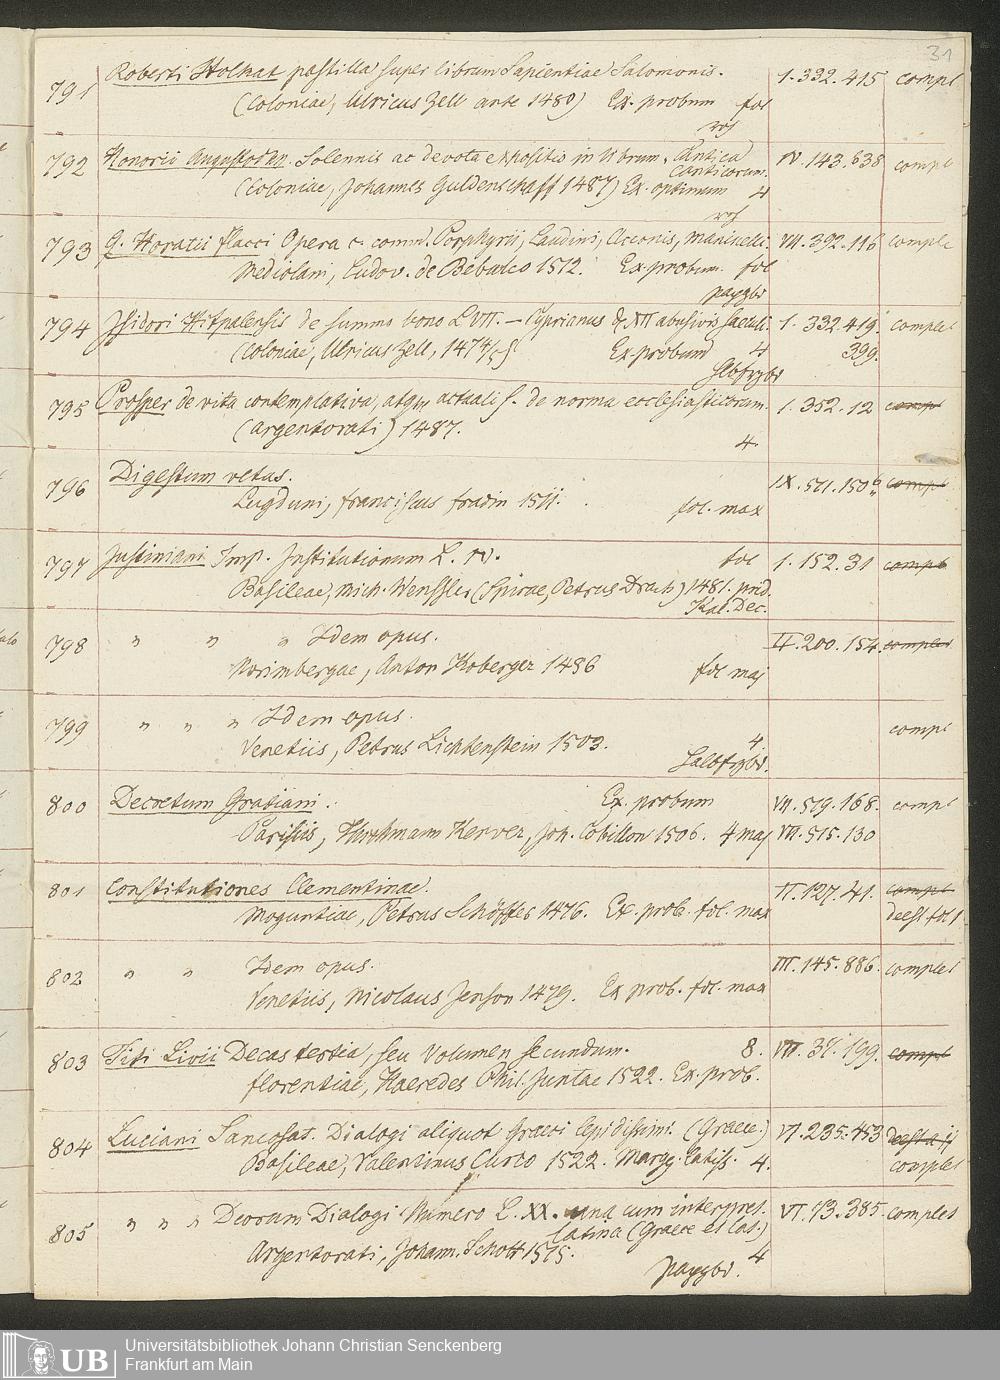 31
791 Roberti Holkat postilla super librum Sapientiae Salomonis. 1. 332. 415 compl
(Coloniae, Ulricus Zell ante 1480) Ex. probum fol
792 Honorii Augustodun. Solennis ac devota expositio in librum Cantica IV. 143. 638 compl
canticorum.
(Coloniae, Johannes Guldenschaff 1487) Ex. optimum 4
793 Q. Horatii Flacci Opera c. comm. Porphyrii, Landini, Acronis, Mancinelli. VII. 392. 116 comple
Mediolani, Ludov. de Bebulco 1512. Ex. probum. fol
794 Isidori Hispalensis de summo bono L VII. — Cyprianus de XII abusivis saeculi. 1. 332. 419. complet
(Coloniae, Ulricus Zell, 1474/75) Ex. probum 4 399.
795 Prosper de vita contemplativa, atque actuali s. de norma ecclesiasticorum. 1. 352. 12 compl
(Argentorati) 1487.
4.
796 Digestum vetus. IX. 571. 150 compl
Lugduni, Franciscus Fradin 1511. fol. max
797 Justiniani Imp. Institutionum L. IV. fol 1. 152. 31 compl
Basileae, Mich. Wenssler (Spirae, Petrus Drach) 1481. prid.
Kal. Dec.
798 " " " Idem opus. II. 200. 154. complet
Norimbergae, Anton Koberger 1486 fol maj
799 " " " Idem opus. compl
Venetiis, Petrus Lichtenstein 1503. 4.
800 Decretum Gratiani. Ex. probum VII. 519. 168. compl
Parisiis, Thielmann Kerver, Joh. Cobillon 1506. 4 maj VII. 515. 130
801 Constitutiones Clementinae. II. 127. 41. compl
Moguntiae, Petrus Schöffer 1476. Ex. prob. fol. max deest fol 1
802 " " Idem opus. III. 145. 886. complet
Venetiis, Nicolaus Jenson 1479. Ex prob. fol. max
803 Titi Livii Decas tertia, seu Volumen secundum. 8. VIII. 37. 199. compl
Florentiae, Haeredes Phil. Juntae 1522. Ex. prob.
804 Luciani Samosat. Dialogi aliquot Graeci lepidissimi. (Graece.) VI. 235. 453
Basileae, Valentinus Curio 1522. Marg. latiss. 4. complet
805 " " " Deorum Dialogi Numero L. XX. una cum interpret. VI. 73. 385. complet
latina (Graece et lat.)
Argentorati, Johann. Schott 1515. 4
UB Universitätsbibliothek Johann Christian Senckenberg
Frankfurt am Main